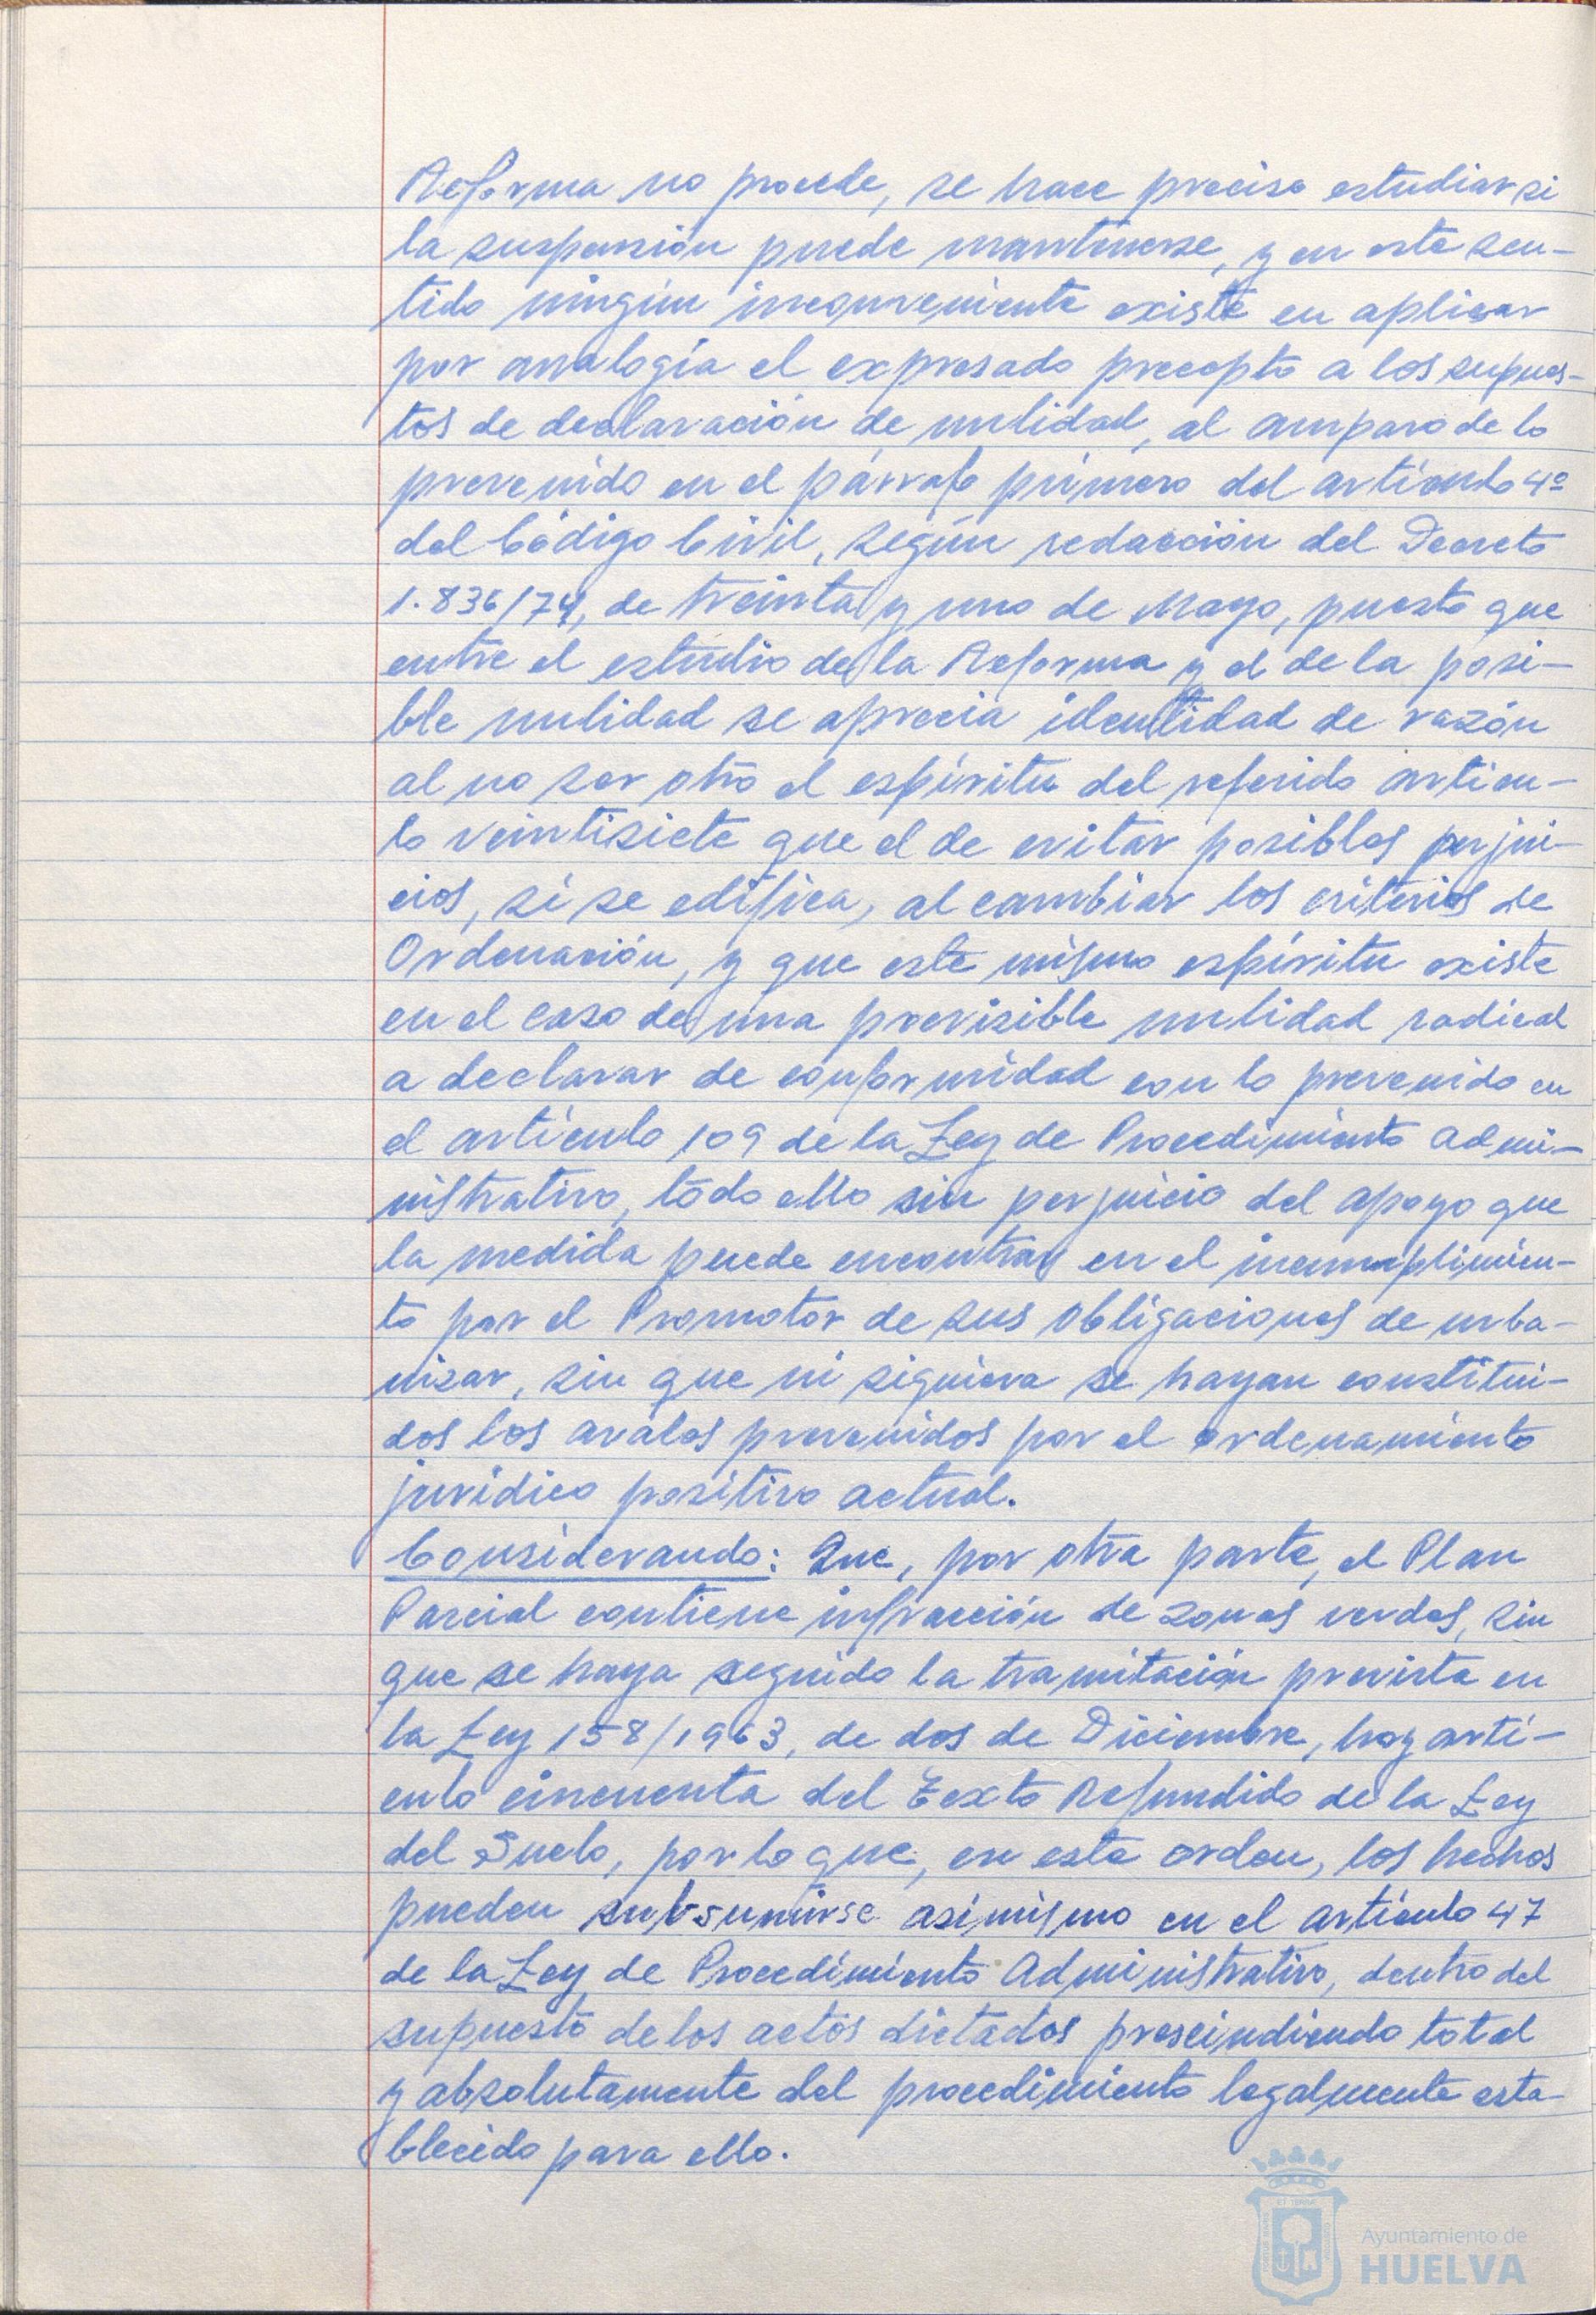 Reforma no procede, se hace preciso estudiar si
la suspensión puede mantenerse, y en este sen-
tido ningún inconveniente existe en aplicar
por analogía el expresado precepto a los supues-
tos de declaración de nulidad, al amparo de lo
prevenido en el párrafo primero del artículo 4º
del Código Civil, según redacción del Decreto
1.836/74, de treinta y uno de Mayo, puesto que
entre el estudio de la Reforma y el de la posi-
ble nulidad se aprecia identidad de razón
al no ser otro el espíritu del referido artícu-
lo veintisiete que el de evitar posibles perjui-
cios, si se edifica, al cambiar los criterios de
Ordenación, y que este mismo espíritu existe
en el caso de una previsible nulidad radical
a declarar de conformidad con lo prevenido en
el artículo 109 de la Ley de Procedimiento Admi-
nistrativo, todo ello sin perjuicio del apoyo que
la medida puede encontrar en el incumplimien-
to por el Promotor de sus obligaciones de urba-
nizar, sin que ni siquiera se hayan constitui-
dos los avales prevenidos por el ordenamiento
jurídico positivo actual.
Considerando: Que, por otra parte, el Plan
Parcial contiene infracción de zonas verdes, sin
que se haya seguido la tramitación prevista en
la Ley 158/1963, de dos de Diciembre, hoy artí-
culo cincuenta del Texto Refundido de la Ley
del Suelo, por lo que, en este orden, los hechos
pueden subsumirse asimismo en el artículo 47
de la Ley de Procedimiento Administrativo, dentro del
supuesto de los actos dictados prescindiendo total
y absolutamente del procedimiento legalmente esta-
blecido para ello.
Ayuntamiento de
HUELVA